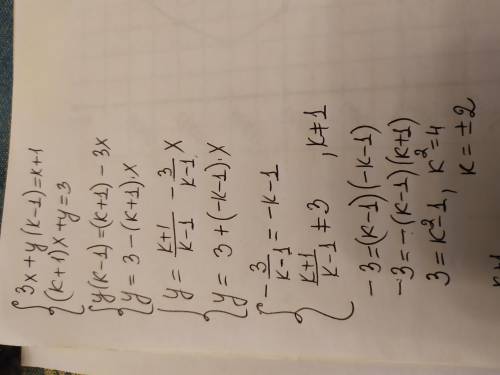 {3x+y(k-1)=k+1
(k+1)x+y=3
{y(k-1)=(k+1)-3x
y=3-(k+1)·x
{y=\frac{k+1}{k-1}-\frac{3}{k-1}·x
y=3+(-k-1)·x
{-\frac{3}{k-1}=-k-1
\frac{k+1}{k-1}≠3 , k≠1
-3=(k-1)(-k-1)
-3=-(k-1)(k+1)
3=k²-1, k²=4
k=±2